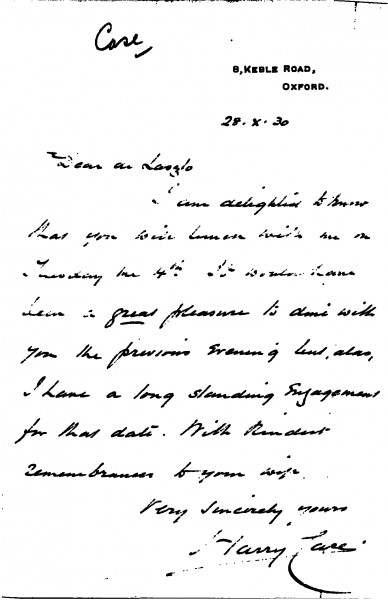 Case,
8, KEBLE ROAD,
OXFORD.
28. X. 30
Dear de Laszlo
I am delighted to know
that you will lunch with me on
Tuesday the 4th. It would have
been a great pleasure to dine with
you the previous Evening but, alas,
I have a long standing Engagement
for that date. With Kindest
remembrances to your wife
Very Sincerely yours
Harry Case